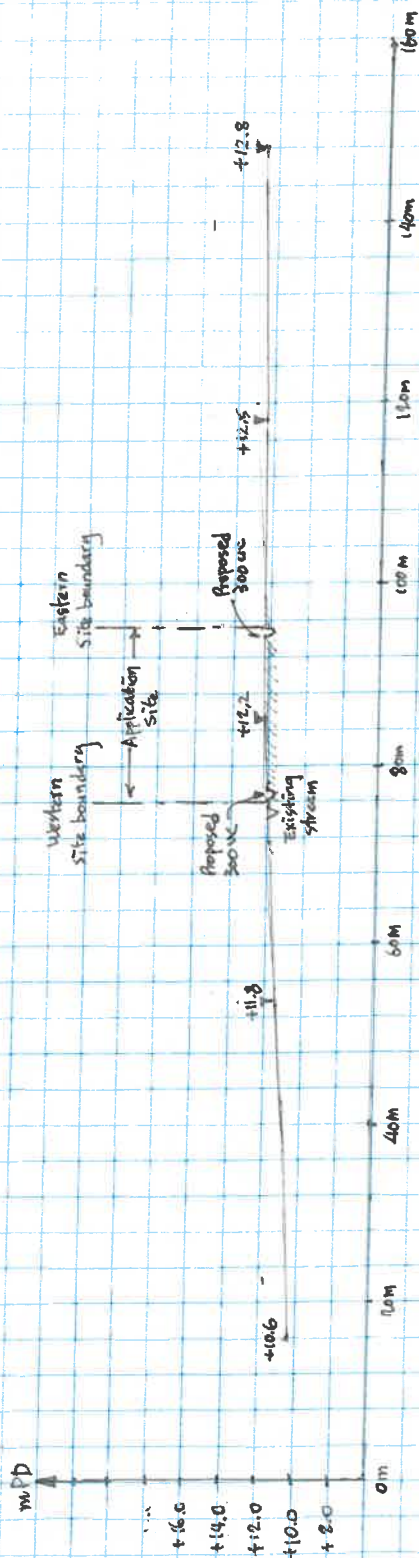 mPD
+16.0
+14.0
+12.0
+10.0
+8.0
0m
20m
40m
60m
80m
100m
120m
140m
160m
+10.6
+11.8
+12.2
+12.5
+12.8
Western
Site boundary
Eastern
Site boundary
Application
Site
Proposed
300 uc
Existing
stream
Proposed
300 uc